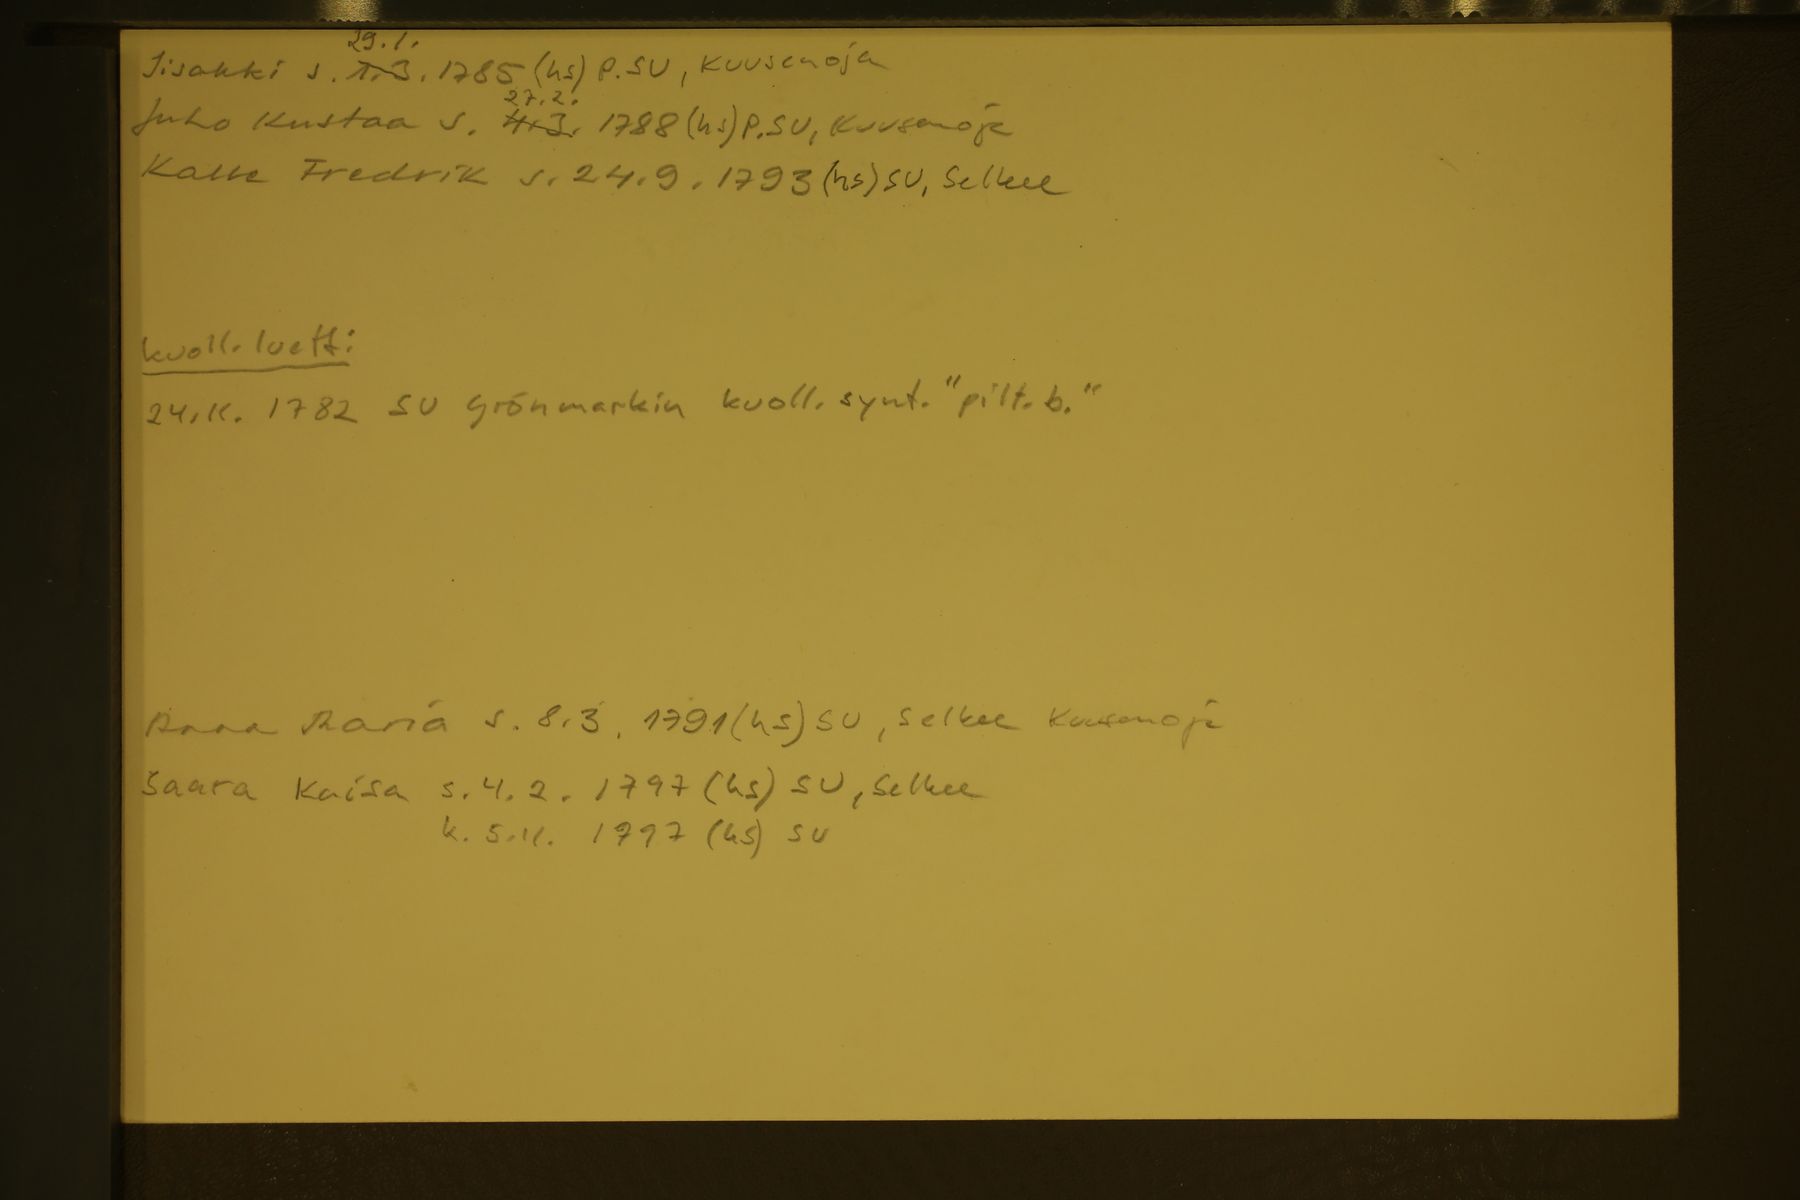 29.1.
Iisakki s. 1.3. 1785 (hs) P.SU, Kuusenoja
27.2.
Juho Kustaa s. 4.3. 1788 (hs) P.SU, Kuusenoja
Kalle Fredrik s. 24.9. 1793 (hs) SU, Selkee
kuoll. luett:
24.11. 1782 SU Grönmarkin kuoll. synt. "pilt. b."
Anna Maria s. 8.3. 1791 (hs) SU, Selkee Kuusenoja
Saara Kaisa s. 4.2. 1797 (hs) SU, Selkee
k. 5.11. 1797 (hs) SU